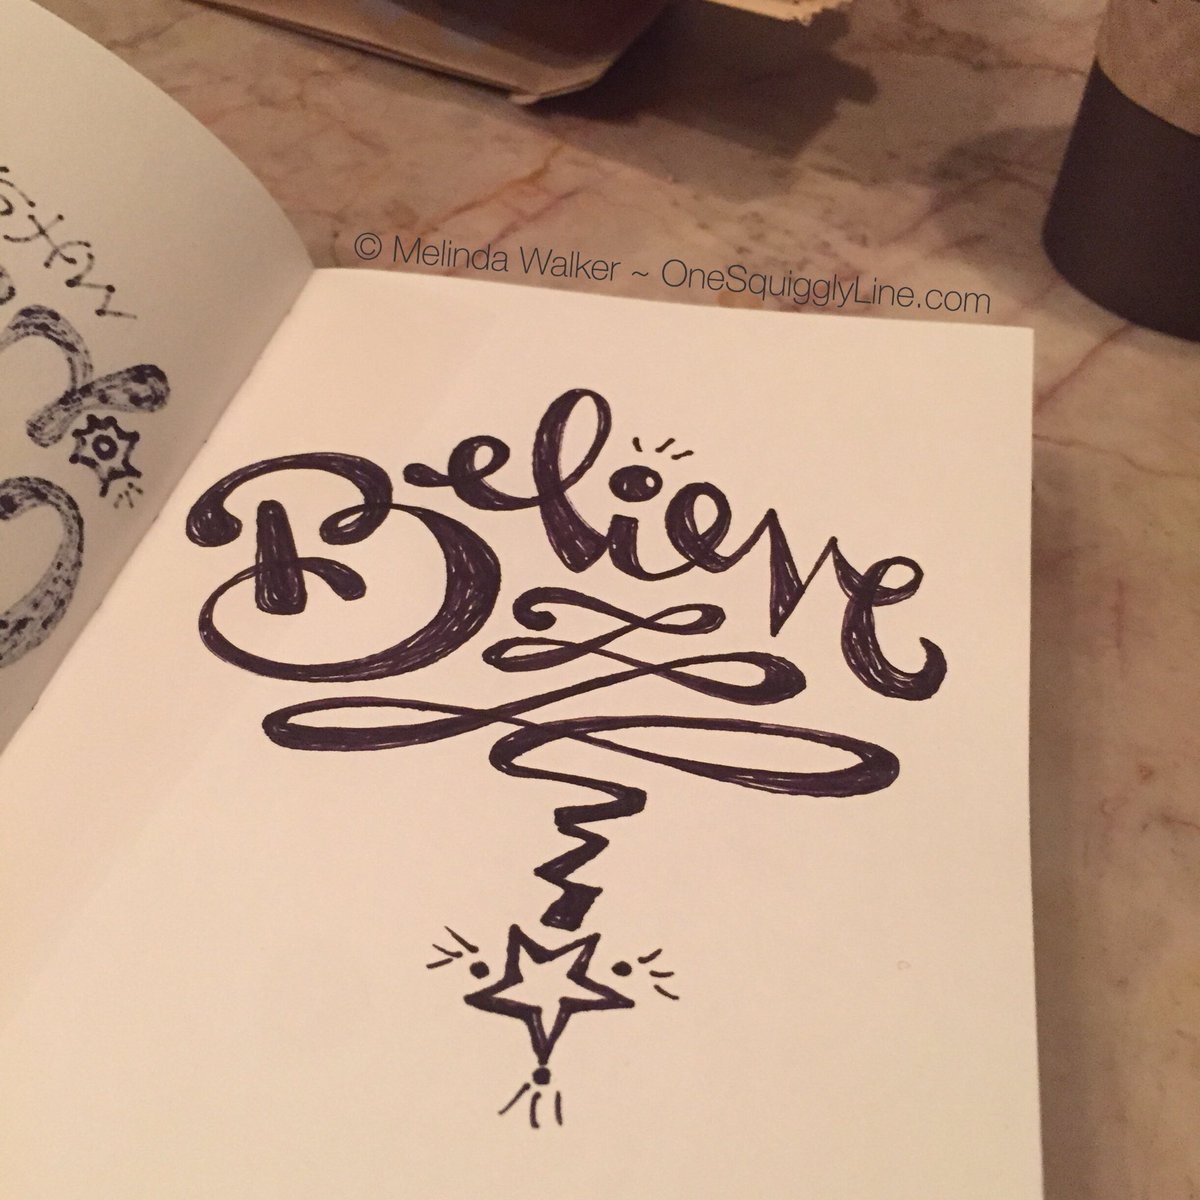 © Melinda Walker ~ OneSquigglyLine.com
Believe